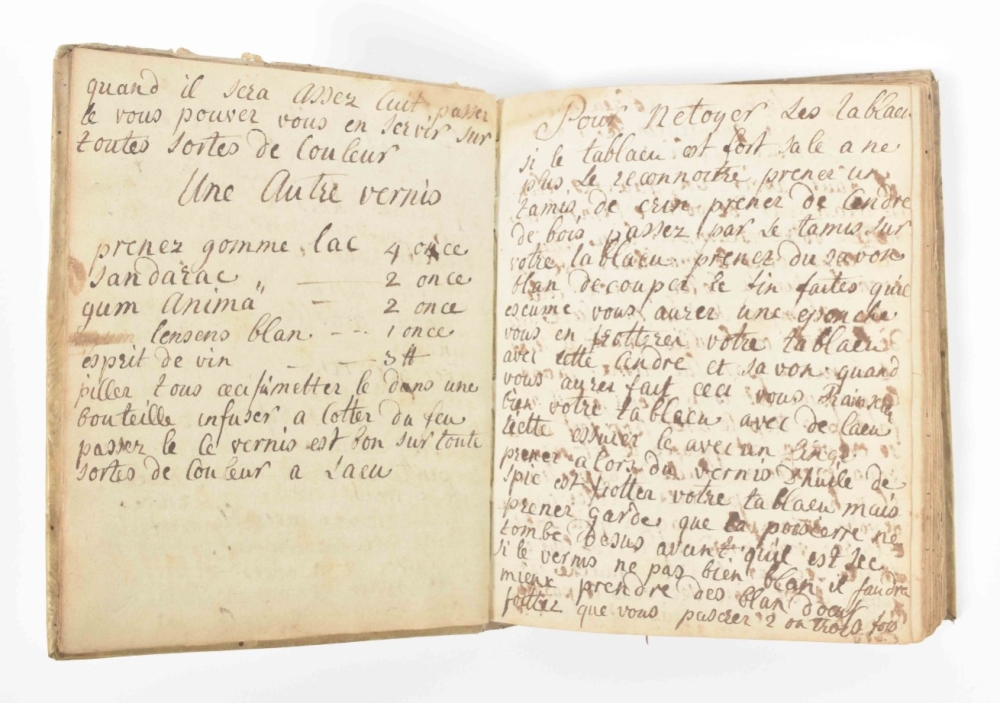 quand il sera assez cuit passez
le vous pouvez vous en servir sur
toutes sortes de Couleur
Une Autre vernis
prenez gomme lac 4 once
Sandarac 2 once
gum Anima 2 once
lensens blan 1 once
esprit de vin 3 ℔
piller tous ceci metter le dans une
bouteille infuser a Cotter du feu
passez le Ce vernis est bon sur toute
sortes de Couleur a L'aeu
Pour Netoyer Les tablaeu
si le tablaeu est fort sale a ne
plus Le reconnoitre prener un
tamis de crin prener de Cendre
de bois passez par Le tamis sur
votre tablaeu prener du savon
blan decouper le fin faites qu'il
escume vous aurez une eponche
vous en frotterer votre tablaeu
avec cette Cendre et savon quand
vous aurer fait ceci vous
bien votre tablaeu avec de laeu
essuier le avec un linge
prener alors du vernis d'huile de
spic est frotter votre tablaeu mais
prener garde que la pousierre ne
tombe desus avant qu'il est sec
si le vernis ne pas bien blan il faudra
mieux prendre des blan d'oeuf
que vous passerer 2 ou trois fois